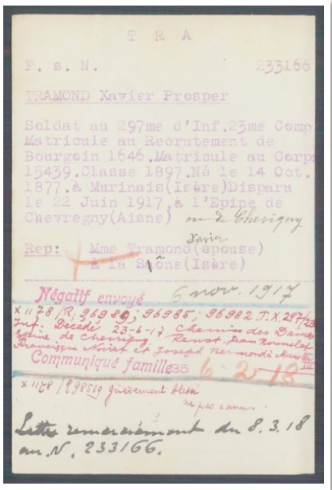 T R A
F. s. N. 233166
TRAMOND Xavier Prosper
Soldat au 297me d'Inf.23me Comp
Matricule au Recrutement de
Bourgoin 1646.Matricule au Corps
15439.Classe 1897.Né le 14 Oct.
1877.à Murinais(Isère)Disparu
le 22 Juin 1917.à l'Epine de
Chevregny(Aisne)
Xavier
Rep: Mme Tramond(épouse)
à la Sône(Isère)
Négatif envoyé 6 nov. 1917
X 1178/R, 96980, 96985, 96982
Inf. Décédé 23-6-17 Chemin des Dames
Communiqué famille 6-2-18
grièvement blessé
ne pas
Lettre remerciement du 8.3.18
au N. 233166.